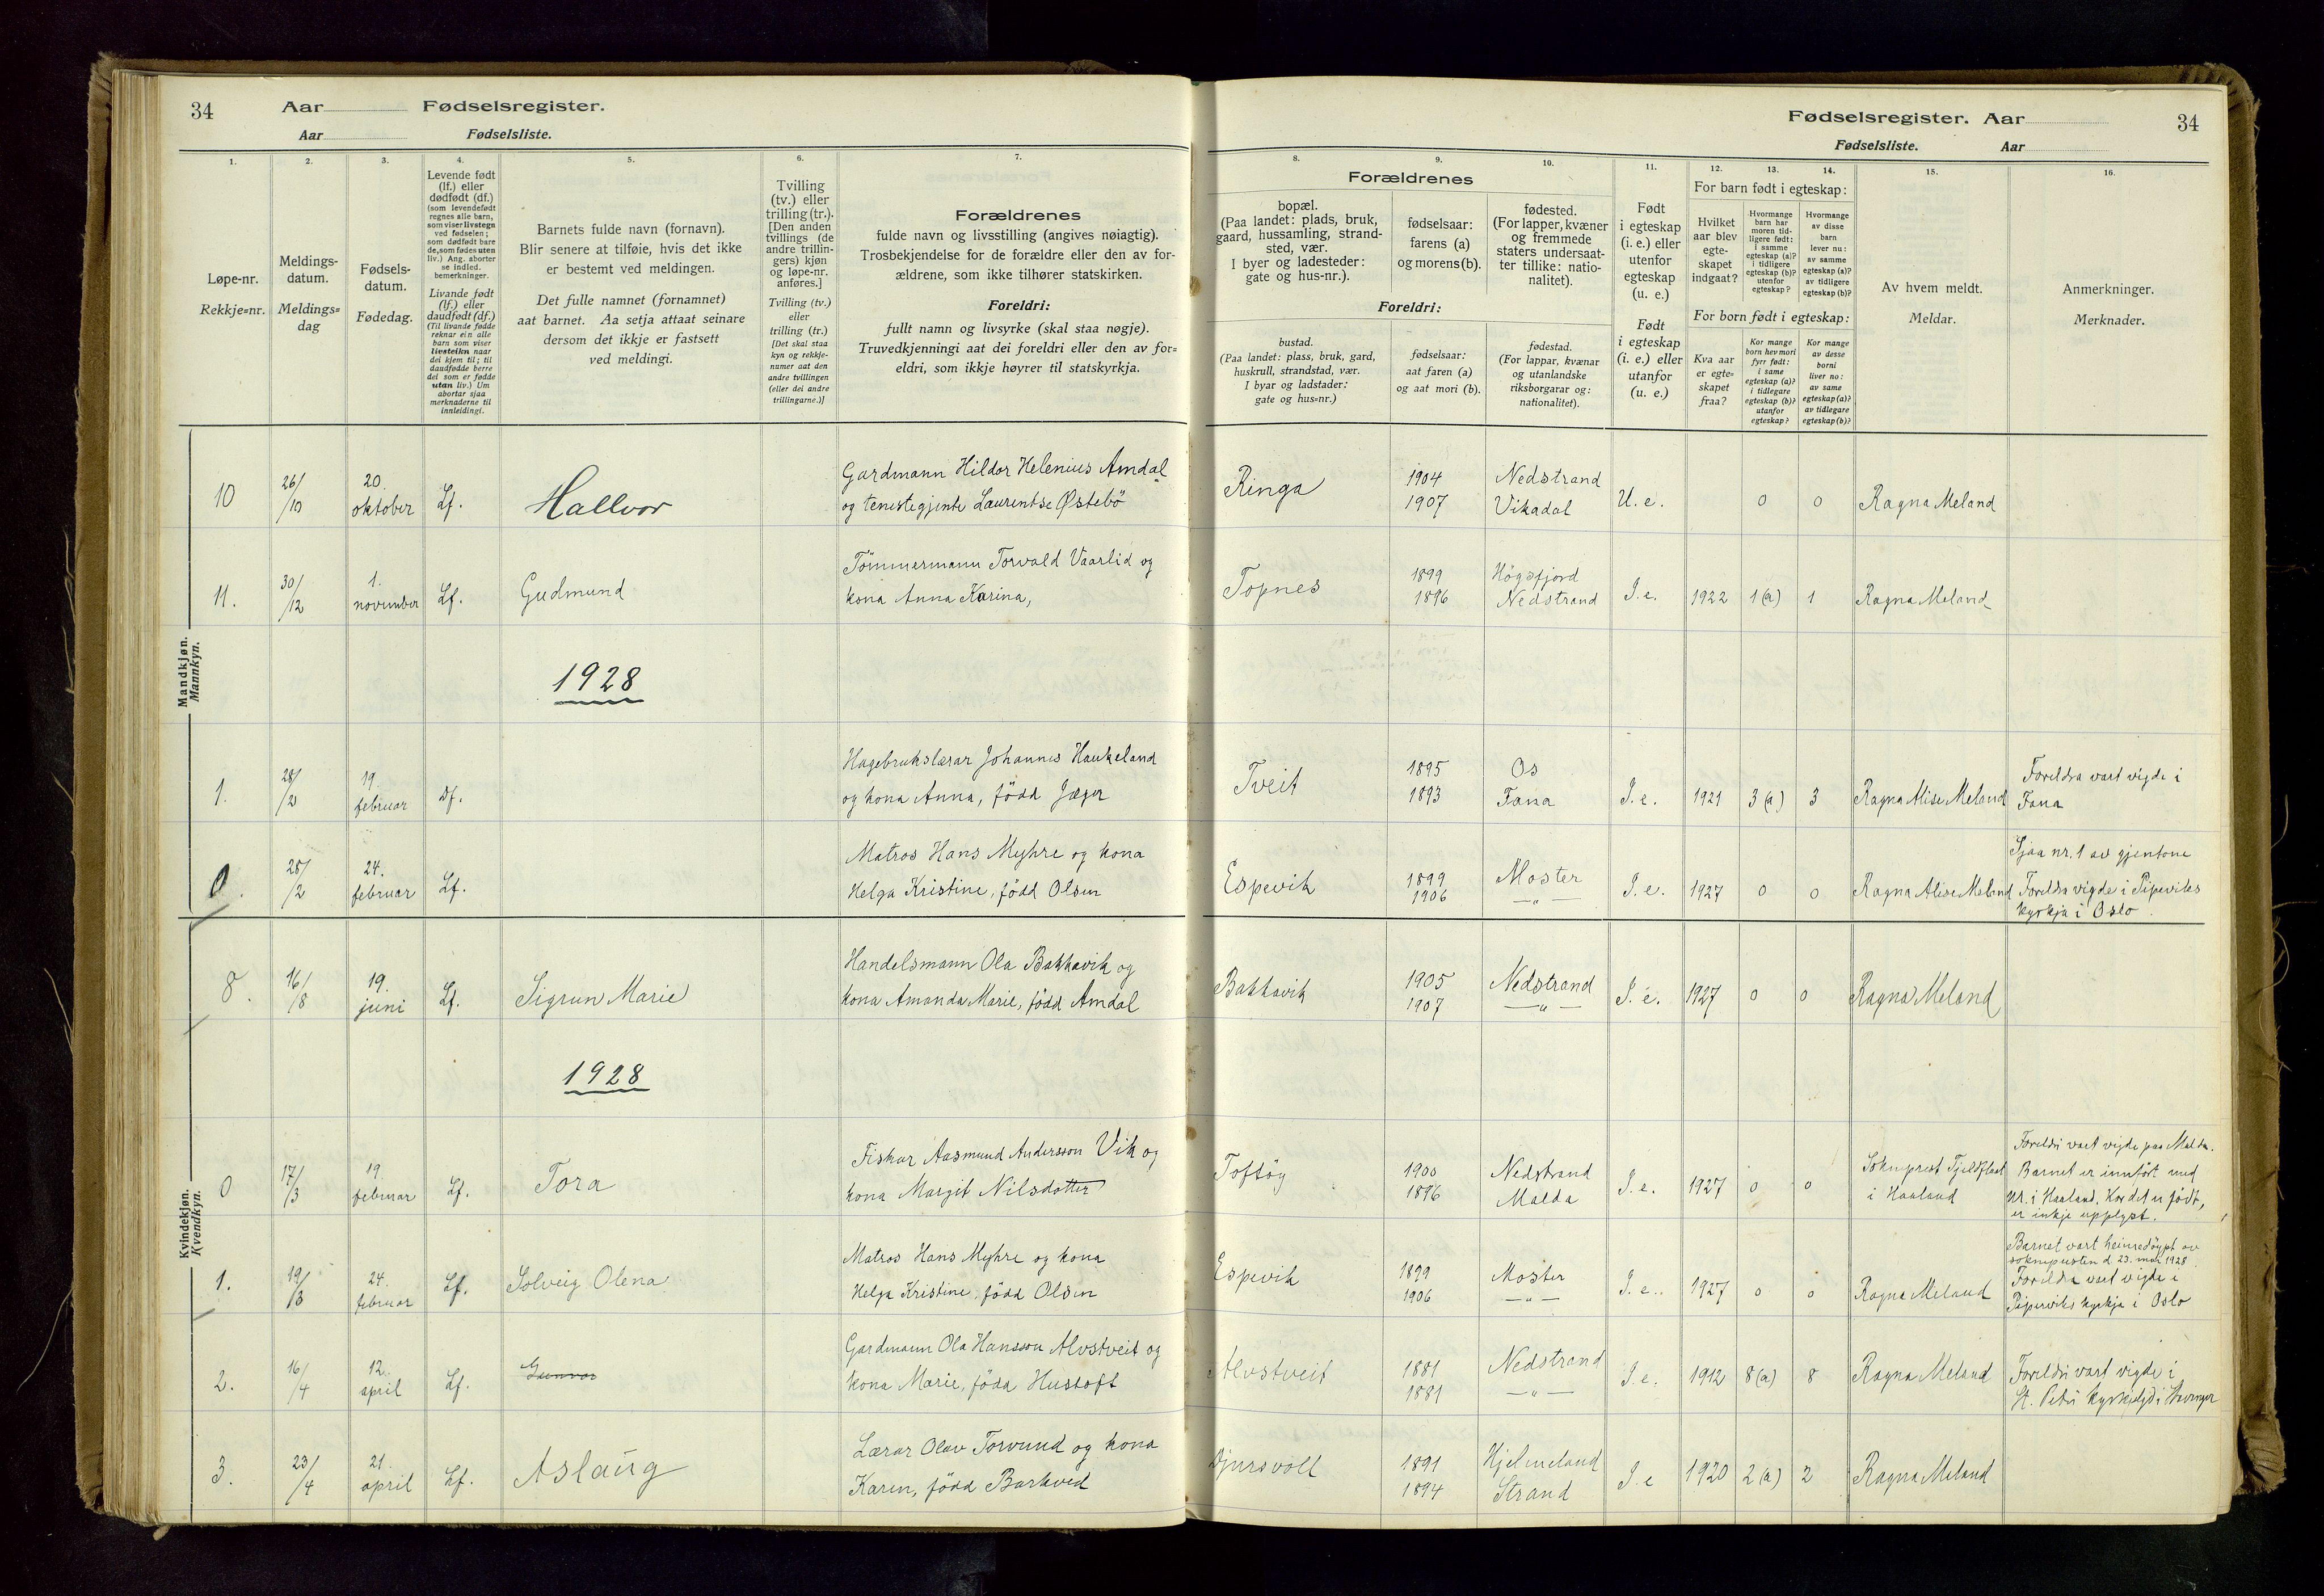 34 Aar Fødselsregister.
Aar Fødselsliste.
1. 2. 3. 4. 5. 6. 7.
Løpe-nr.
Rekkje=nr.
Meldings-
datum.
Meldings=
dag
Fødsels-
datum.
Fødedag.
Levende født
(lf.) eller
dødfødt (df.)
(som levendefødt
regnes alle barn,
som viser livstegn
ved fødselen;
som dødfødt bare
de, som fødes uten
liv.) Ang. aborter
se indled.
bemerkninger.
Livande født
(lf.) eller
daudfødt (df.)
(Til livande fødde
reknar ein alle
barn som viser
livsteikn naar
dei kjem til; til
daudfødde berre
dei som er fødde
utan liv.) Um
abortar sjaa
merknaderne til
innleidingi.
Barnets fulde navn (fornavn).
Blir senere at tilføie, hvis det ikke
er bestemt ved meldingen.
Det fulle namnet (fornamnet)
aat barnet. Aa setja attaat seinare
dersom det ikkje er fastsett
ved meldingi.
Tvilling
(tv.) eller
trilling (tr.).
[Den anden
tvillings (de
andre trillin-
gers) kjøn
og løpe-nr.
anføres.]
Tvilling (tv.)
eller
trilling (tr.)
[Det skal staa
kyn og rekkje-
numer aat den
andre tvillingen
(eller dei andre
trillingarne.)]
Forældrenes
fulde navn og livsstilling (angives nøiagtig).
Trosbekjendelse for de forældre eller den av for-
ældrene, som ikke tilhører statskirken.
Foreldri:
fullt namn og livsyrke (skal staa nøgje).
Truvedkjenningi aat dei foreldri eller den av for=
eldri, som ikkje høyrer til statskyrkja.
Mandkjøn.
Mannkyn.
10 26/10 20. oktober Lf. Hallvor Gardmann Hildor Helenius Amdal
og tenestegjenta Laurentse Østebö
11. 30/12 1. november Lf. Gudmund Tömmermann Torvald Vaarlid og
kona Anna Karina,
1928
1. 28/2 19. februar Df. Hagebrukslærar Johannes Haukeland
og kona Anna, född Jæger
0. 28/2 24. februar Lf. Matros Hans Myhre og kona
Helga Kristine, född Olsen
Kvindekjøn.
Kvendkyn.
8. 16/8 19. juni Lf. Sigrun Marie Handelsmann Ola Bakkavik og
kona Amanda Marie, född Amdal
1928
0 17/3 19. februar Lf. Tora Fiskar Aasmund Andersson Vik og
kona Margit Nilsdotter
1. 19/3 24. februar Lf. Solveig Olena Matros Hans Myhre og kona
Helga Kristine, född Olsen
2. 16/4 12. april Lf. Gunvor Gardmann Ola Hansson Alvstveit og
kona Marie, född Hustoft
3. 23/4 21. april Lf. Aslaug Lærar Olav Torvund og kona
Karen, född Barkved
Fødselsregister. Aar 34
Fødselsliste. Aar
8. 9. 10. 11. 12. 13. 14. 15. 16.
Forældrenes
bopæl.
(Paa landet: plads, bruk,
gaard, hussamling, strand-
sted, vær.
I byer og ladesteder:
gate og hus-nr.).
fødselsaar:
farens (a)
og morens (b).
fødested.
(For lapper, kvæner
og fremmede
staters undersaat-
ter tillike: natio-
nalitet).
Foreldri:
bustad.
(Paa landet: plass, bruk, gard,
huskrull, strandstad, vær.
I byar og ladstader:
gate og hus=nr.)
fødselsaar:
aat faren (a)
og aat mori (b).
fødestad.
(For lappar, kvænar
og utanlandske
riksborgarar og:
nationalitet).
Født
i egteskap
(i. e.) eller
utenfor
egteskap
(u. e.)
Født
i egteskap
(i. e.) eller
utanfor
(u. e.)
For barn født i egteskap:
Hvilket
aar blev
egte-
skapet
indgaat?
Hvormange
barn har
moren tid-
ligere født:
i samme
egteskap (a)?
i tidligere
egteskap (b)?
utenfor
egteskap?
Hvormange
av disse
barn
lever nu:
av samme
egteskap (a)?
av tidligere
egteskap (b)?
For born født i egteskap:
Kva aar
er egte=
skapet
fraa?
Kor mange
born hev mori
fyrr født:
i same
egteskap (a)?
i tidlegare
egteskap (b)?
utanfor
egteskap?
Kor mange
av desse
borni
liver no:
av same
egteskap (a)?
av tidlegare
egteskap (b)?
Av hvem meldt.
Meldar.
Anmerkninger.
Merknader.
Ringa 1904 1907 Nedstrand Vikadal U. e. 0 0 Ragna Meland
Topnes 1899 1896 Högsfjord Nedstrand I. e. 1922 1 (a) 1 Ragna Meland
Tveit 1895 1893 Os Fana I. e. 1921 3 (a) 3 Ragna Alise Meland Foreldra vart vigde i
Fana
Espevik 1899 1906 Moster —"— I. e. 1927 0 0 Ragna Alise Meland Sjaa nr. 1 av gjentone
Foreldra vigde i Pipeviks
kyrkja i Oslo.
Bakkavik 1905 1907 Nedstrand —"— I. e. 1927 0 0 Ragna Meland
Toftöy 1900 1896 Nedstrand Malda I. e. 1927 0 0 Sokneprest Tjeldflaat
i Haaland
Foreldri vart vigde paa Malda.
Barnet er innfört med
nr. i Haaland. Kor det er födt,
er inkje upplyst.
Espevik 1899 1906 Moster —"— I. e. 1927 0 0 Ragna Meland
Barnet vart heimedöypt av
soknepresten d 23. mai 1928
Foreldra vart vigde i
Pipeviks kyrkja i Oslo
Alvstveit 1881 1881 Nedstrand —"— I. e. 1912 8 (a) 8 Ragna Meland Foreldri vart vigde i
St. Petri kyrkjelyd i Stavanger
Djursvöll 1891 1894 Hjelmeland Strand I. e 1920 2 (a) 2 Ragna Meland